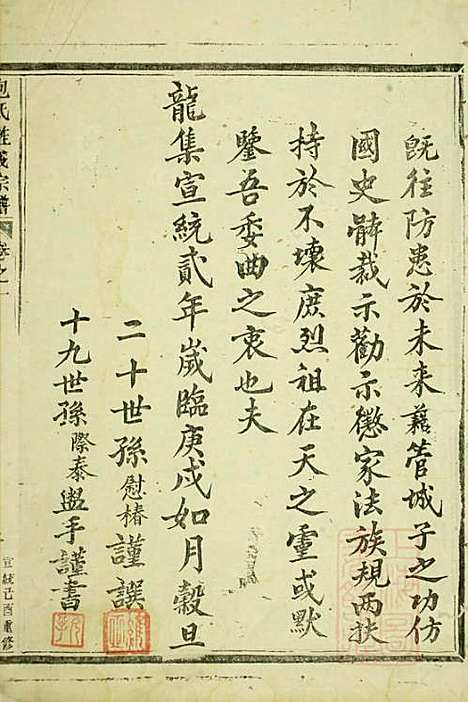 既往防患於未来藉管城子之功仿
國史體裁示勸示懲家法族規兩扶
持於不壞庶烈祖在天之靈或默
鑒吾委曲之衷也夫
龍集宣統貳年嵗臨庚戍如月穀旦
二十世孫慰椿謹譔
十九世孫際泰盥手謹書
包氏
宗譜
卷之一
宣統己酉重修